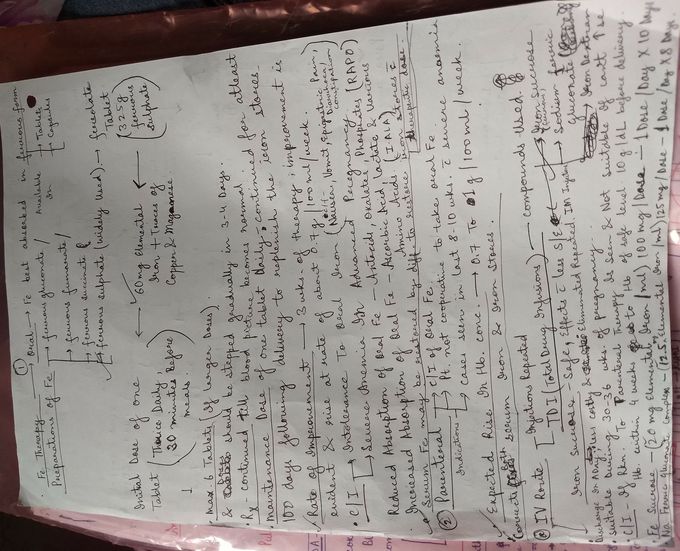 ①
• Fe Therapy → Oral → Fe best absorbed in ferrous form
Preparations of Fe → ferrous gluconate / Available in → Tablet → Capsules
→ ferrous fumarate /
→ ferrous succinate
→ ferrous sulphate (widely used) → Fersolate Tablet
Initial Dose of one Tablet (Thrice Daily 30 minutes before meals.
← 60mg Elemental Iron + Traces of Copper & Manganese ← [325g ferrous sulphate]
Max 6 Tablets (If larger Doses)
& should be stopped gradually in 3-4 Days.
• Rx continued till blood picture becomes normal.
Maintenance Dose of one tablet Daily, continued for atleast
100 days following delivery to replenish the iron stores.
✓ Rate of Improvement → 3 wks. of therapy, improvement is
evident & rise at rate of about 0.7g / 100ml / week.
• C/I → Intolerance To Oral Iron (Nausea, Vomit, Epigastric Pain, Diarrhoea, constipation
→ Severe Anemia In Advanced Pregnancy
Reduced Absorption of Oral Fe - Antacid, Oxalates, Phosphates [RAPO]
Increased Absorption of Oral Fe - Ascorbic Acid, lactate & Various Amino Acids (IALA)
• Serum Fe may be restored by diff to restore iron stores c̄ therapeutic dose.
② Parenteral → C/I of Oral Fe
Indications → Pt. not cooperative to take oral Fe
→ Cases seen in last 8-10 wks. c̄ severe anaemia
✓ Expected Rise In Hb. conc. → 0.7 To 1g / 100ml / week.
Corrects Both serum Iron & Iron stores.
① IV Route → Injections Repeated
→ TDI (Total Drug Infusions) → compounds Used → Iron Sucrose
→ Sodium ferric Gluconate
→ Iron Dextran
Iron Sucrose - Safe, Effects c̄ less S/E
costly & Eliminated Repeated IM Injection
Suitable During 30-36 wks of pregnancy.
C/I - If Rxn To Parenteral Therapy Is Seen & Not Suitable if can't ↑se
Hb. within 4 weeks to Hb of safe level 10 g/dL before delivery.
• Fe Sucrose - (20 mg elemental Iron/ml) 100 mg / Dose - 1 Dose / Day X 10 Days
• Na Ferric gluconate complex - (12.5 Elemental Iron/ml) 125 mg / Dose - 1 Dose / Day X 8 Days